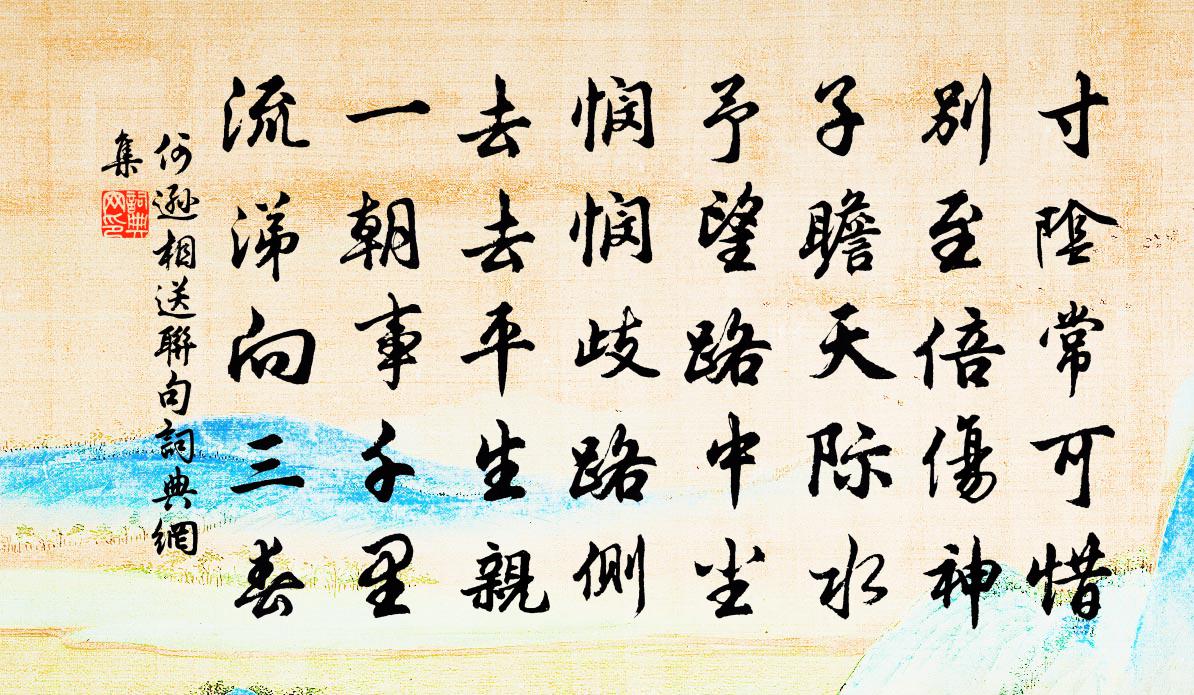 寸陰常可惜
別至倍傷神
子瞻天際水
予望路中尘
憫憫歧路側
去去平生親
一朝事千里
流涕向三春
何遜相送聯句詞典網
集
詞典
网印